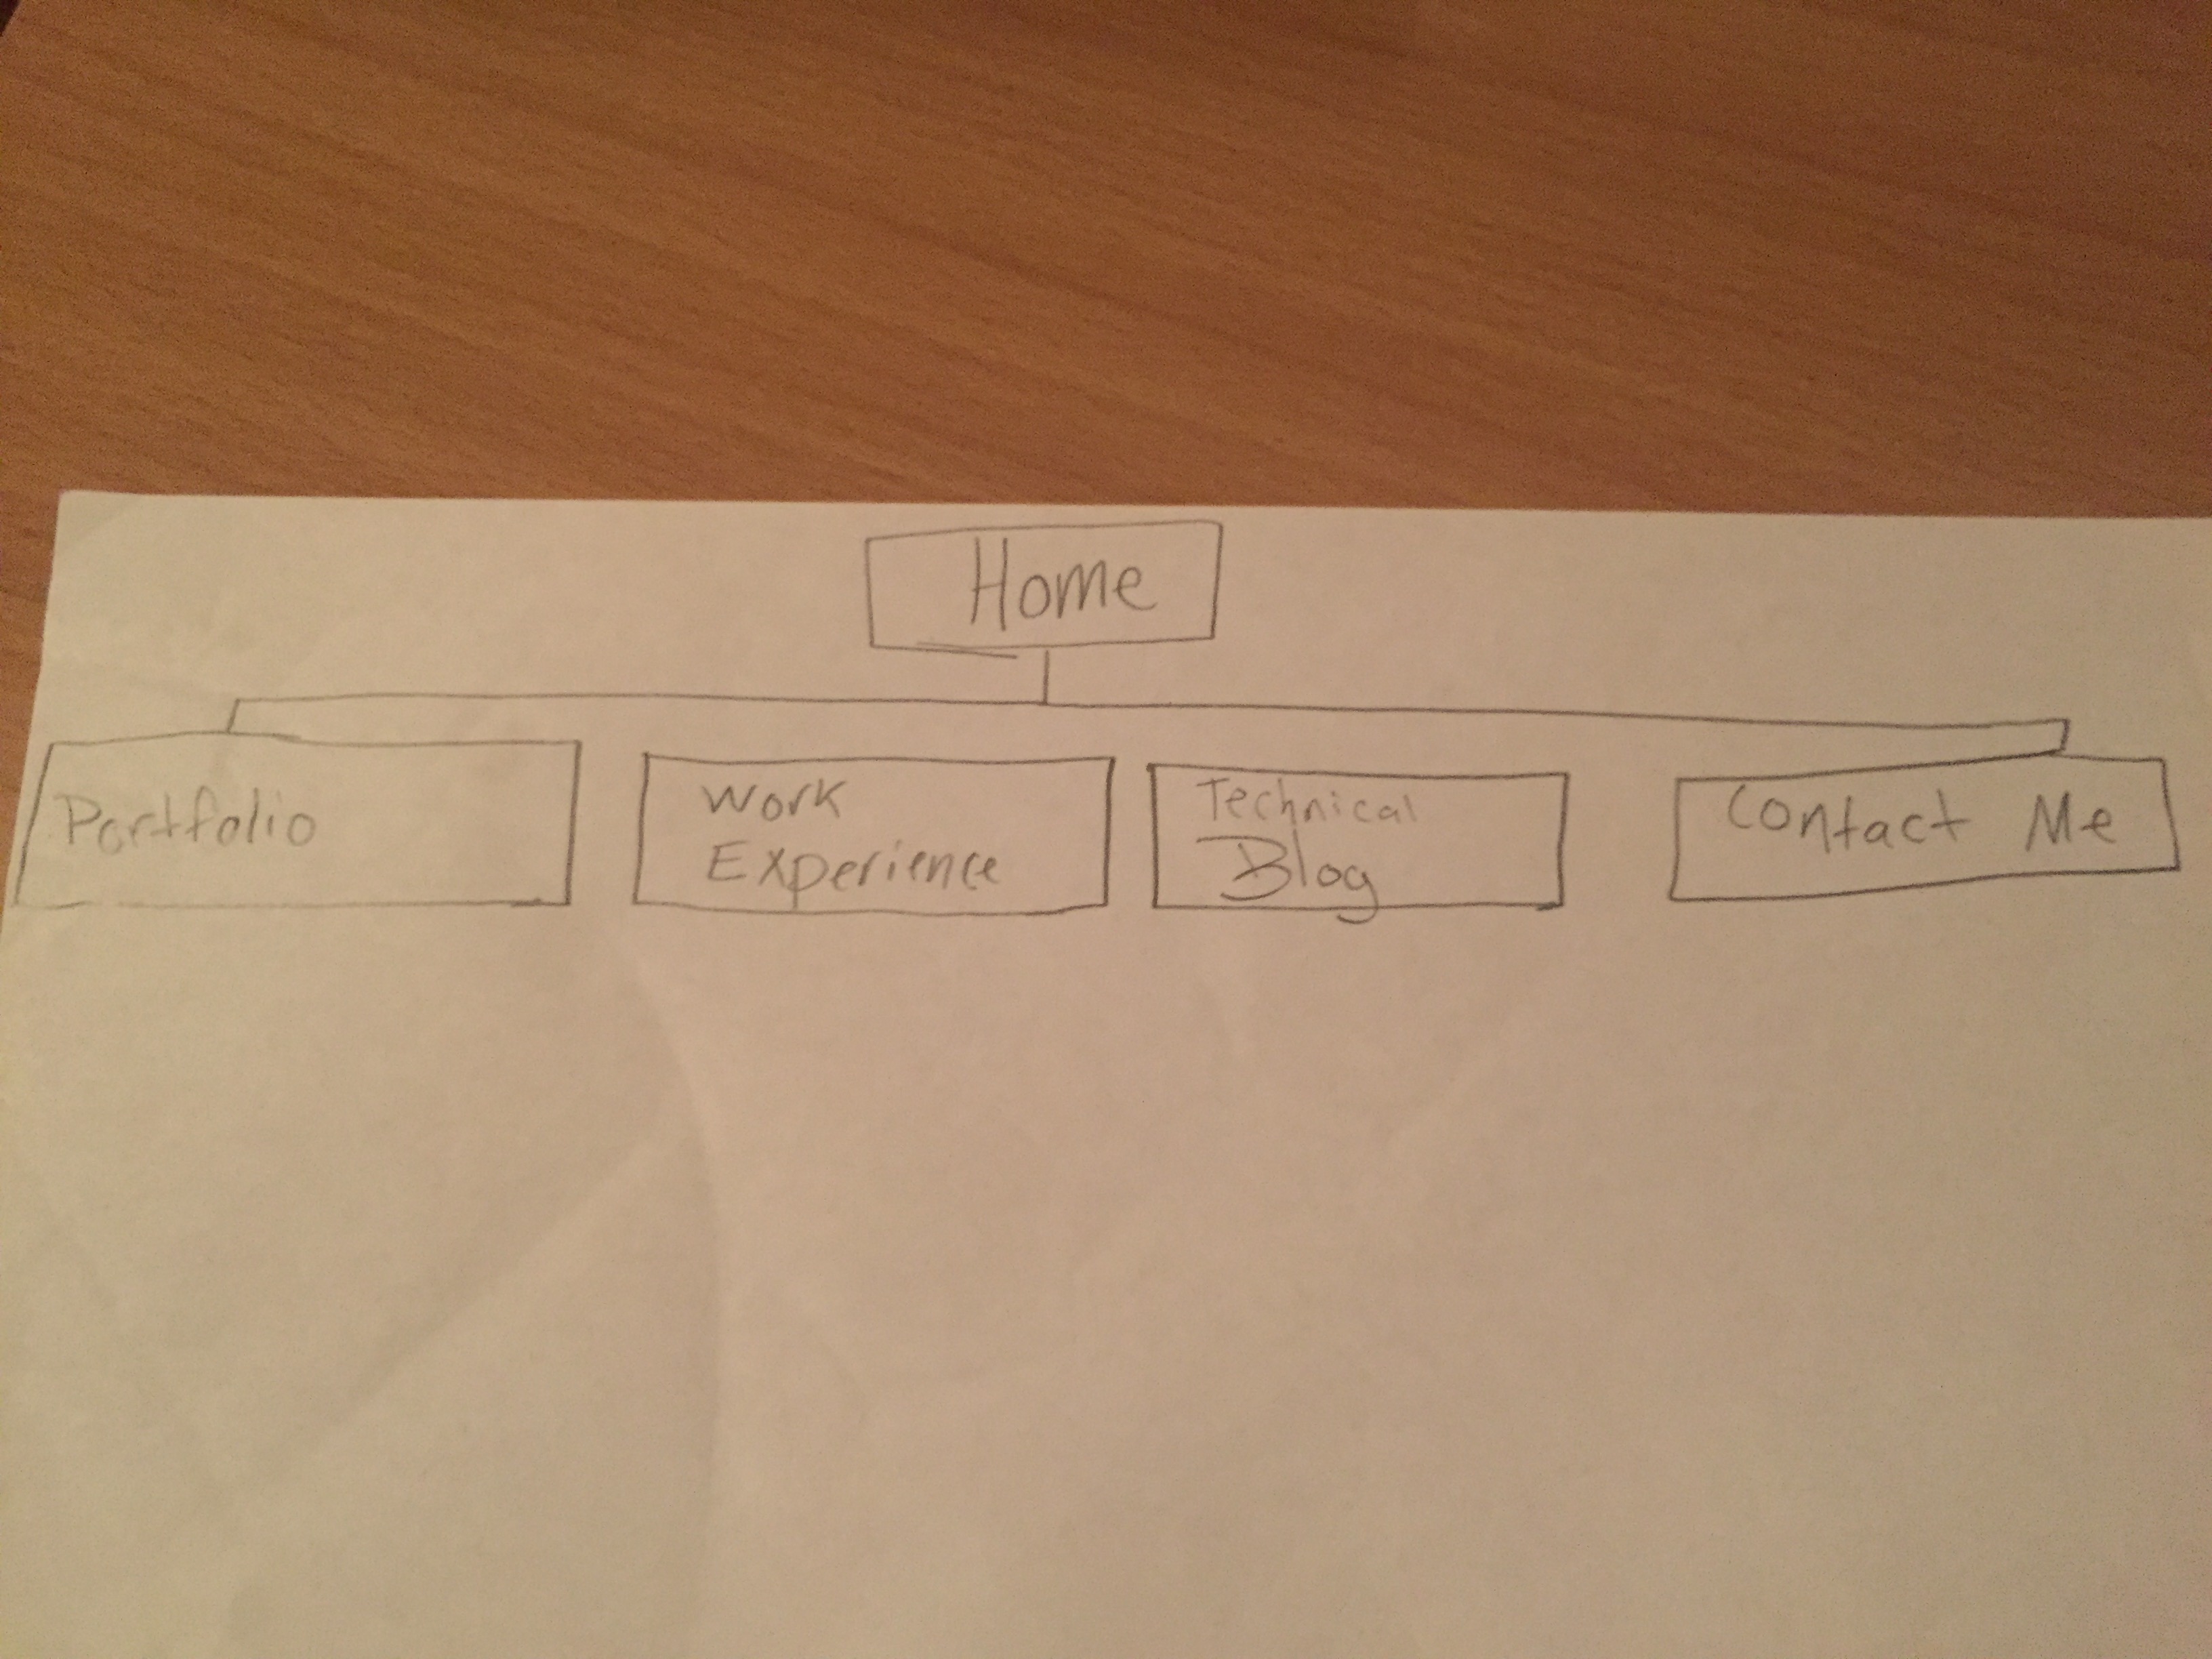 Home
Portfolio
Work
Experience
Technical
Blog
Contact Me